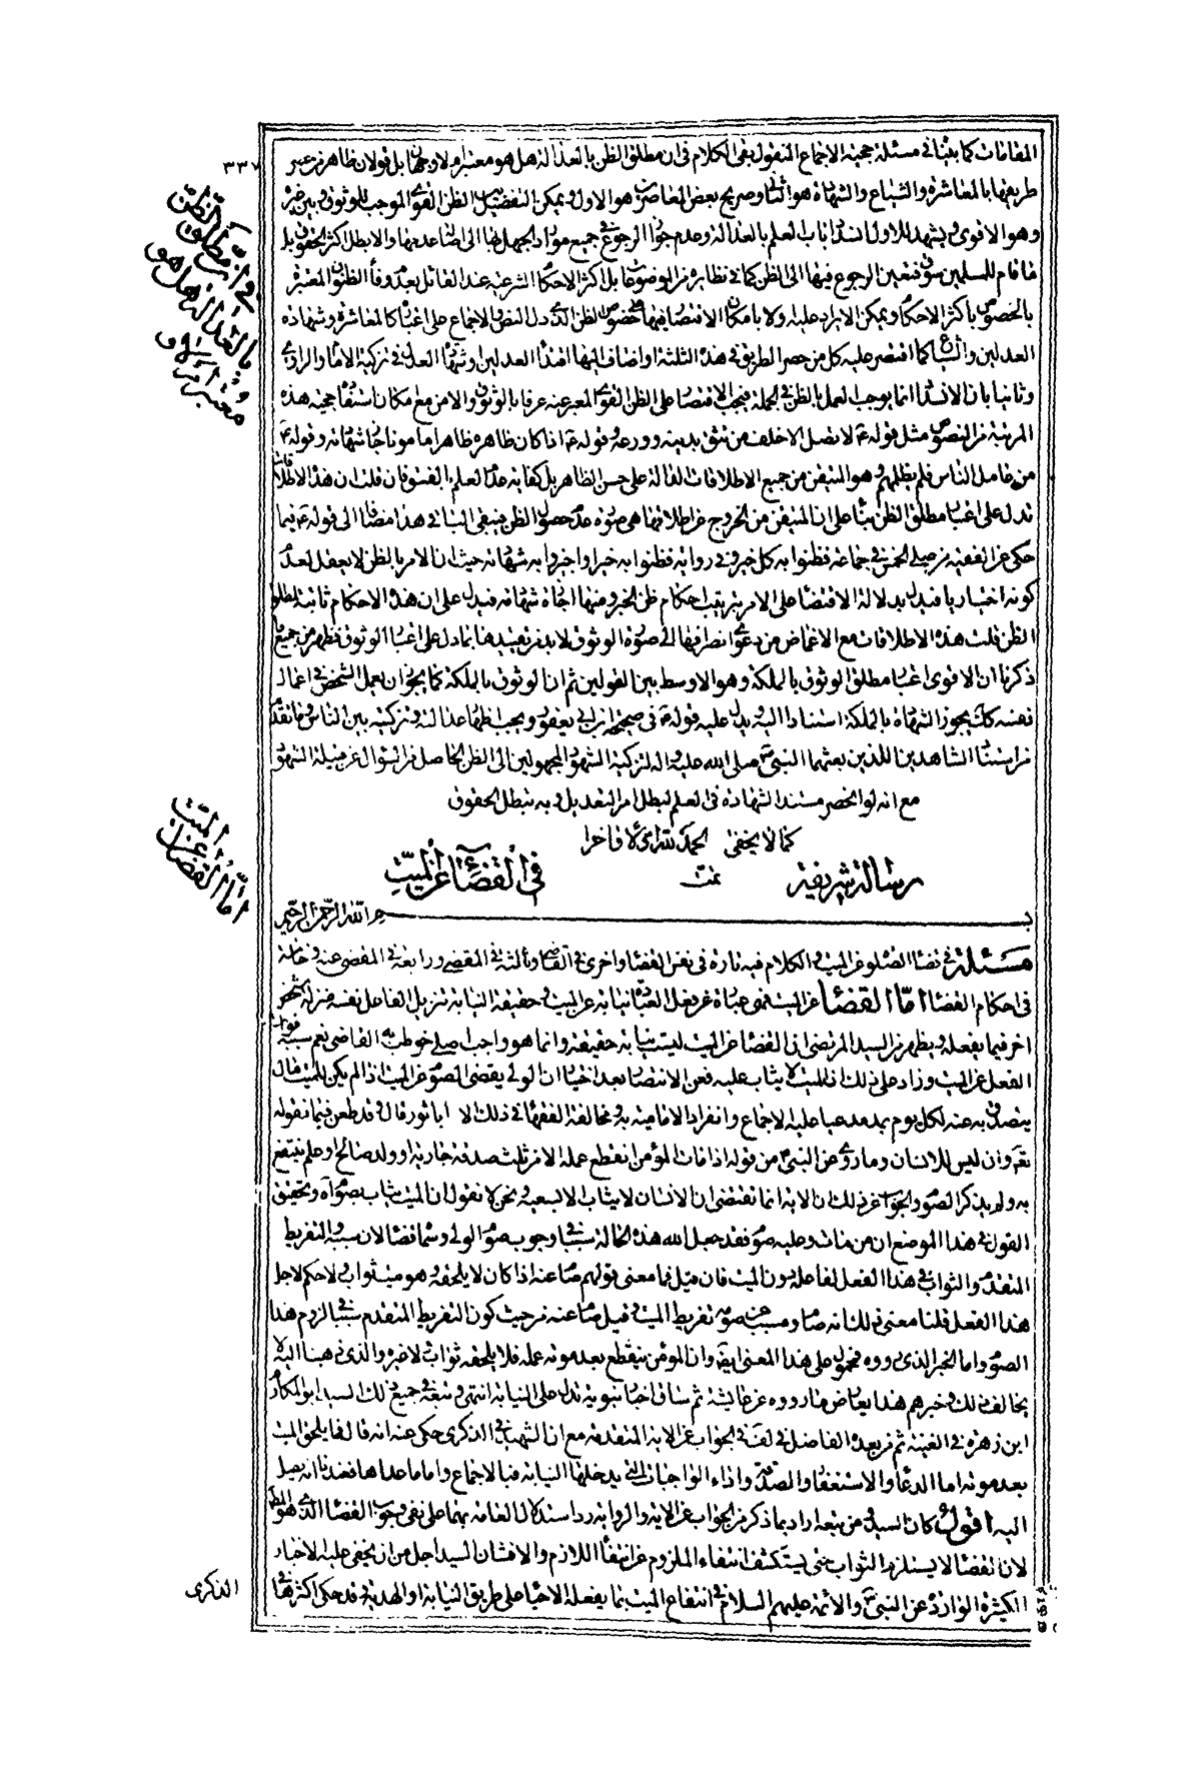 المقامات كما بيناه في مسئلة حجية الاجماع المنقول بقى الكلام في ان مطلق الظن بالعدالة هل هو معتبر ام لا وجهان بل قولان ظاهر من عبر
٣٣٧
طريقها بالمعاشرة والشياع والشهادة هو الثاني وصريح بعض المعاصرين هو الاول ويمكن التفصيل بين الظن القوى الموجب للوثوق وبين غيره
وهو الاقوى ويشهد للاول انسداد باب العلم بالعدالة وعدم جواز الرجوع في جميع موارد الجهل بها الى اصالة عدمها والا بطل اكثر الحقوق بل
ما قام للمسلمين سوق فتعين الرجوع فيها الى الظن كما في نظائره من الموضوعات بل اكثر الاحكام الشرعية عند القائل بعدم وفاء الظنون المعتبرة
بالخصوص باكثر الاحكام ويمكن الايراد عليه اولا بامكان الاقتصار فيها على خصوص الظن الذي دل النص والاجماع على اعتباره كالمعاشرة وشهادة
العدلين والشياع كما اقتصر عليه كل من حصر الطريق في هذه الثلثة او اضاف اليها اقتداء العدلين وشهادة العدل في تزكية الامام والراوى
وثانيا بان الانسداد انما يوجب العمل بالظن في الجملة فيجب الاقتصار على الظن القوى المعبر عنه عرفا بالوثوق والامن مع امكان استفادة حجية هذه
المرتبة من النصوص مثل قوله ع لا تصل الا خلف من تثق بدينه وورعه وقوله ع اذا كان ظاهره ظاهرا مامونا جازت شهادته وقوله ع
من عامل الناس فلم يظلمهم وهو المتيقن من جميع الاطلاقات الدالة على حسن الظاهر بل كفاية عدم العلم بالفسق فان قلت ان هذه الاطلاقات
تدل على اعتبار مطلق الظن بناء على ان المتيقن من الخروج عن اطلاقها هى صورة عدم حصول الظن فيبقى الباقى هذا مضافا الى قوله ع فيما
حكى عن الفقيه من صلى الخمس في جماعة فظنوا به كل خير وفي رواية فظنوا به خيرا واجيزوا شهادته حيث ان الامر بالظن لا يعقل لعدم
كونه اختياريا فيدل بدلالة الاقتضاء على الامر بترتيب احكام ظن الخير ومنها اجازة شهادته فيدل على ان هذه الاحكام ثابتة لمطلق
الظن قلت هذه الاطلاقات مع الاغماض من دعوى انصرافها الى صورة الوثوق لا بد من تقييدها بما دل على اعتبار الوثوق فظهر من جميع ما
ذكرنا ان الاقوى اعتبار مطلق الوثوق بالملكة وهو الاوسط بين القولين ثم ان الوثوق بالملكة كما يجوز ان يعمل الشخص في اعمال
نفسه كذلك يجوز الشهادة بالملكة استنادا اليه ويدل عليه قوله ع في صحيحة ابن ابي يعفور ويجب اظهار عدالته وتزكيته بين الناس وما تقدم
من استناد الشاهدين اللذين بعثهما النبي صلى الله عليه واله لتزكية الشهود المجهولين الى الظن الحاصل من السؤال عن قبيلة الشهود
مع انه لو انحصر مستند الشهادة في العلم لبطل امر التعديل وبه تبطل الحقوق
كما لا يخفى الحمد لله اولا واخرا
رسالة شريفة تمت في القضاء عن الميت
بسم الله الرحمن الرحيم
مسئلة في قضاء الصلوة عن الميت والكلام فيه تارة في نفس القضاء واخرى في القاضي وثالثة في المقضى ورابعة في المقضى عنه وخامسة
في احكام القضاء اما القضاء عن الميت فهى عبارة عن فعل العبادة نيابة عن الميت وحقيقة النيابة تنزيل الفاعل نفسه منزلة شخص
اخر فيما يفعله ويظهر من السيد المرتضى ان القضاء عن الميت ليست نيابة حقيقة وانما هو واجب اصلى خوطب به القاضي نعم سببه فوات
الفعل عن الميت وزاد على ذلك ان الميت لا يثاب عليه فعن الانتصار بعد اختيار ان الولى يقضى الصوم عن الميت اذا لم يكن للميت مال
يتصدق به عنه لكل يوم بمد مدعيا عليه الاجماع وانفراد الامامية به ومخالفة الفقهاء في ذلك الا ابا ثور قال وقد طعن فيما نقوله
بقوله تع وان ليس للانسان وما روى عن النبي ص من قوله اذا مات المؤمن انقطع عمله الا من ثلث صدقة جارية او ولد صالح او علم ينتفع
به ولم يذكر الصوم والجواب عن ذلك ان الاية انما تقتضى ان الانسان لا يثاب الا بسعيه ونحن لا نقول ان الميت يثاب بصوم الولى وتحقيق
القول في هذا الموضع ان من مات وعليه صوم فقد جعل الله هذه الحالة سببا في وجوب صوم الولى وسماه قضاء لان سببه التفريط
المتقدم والثواب في هذا الفعل لفاعله دون الميت فان قيل فما معنى قولهم صام عنه اذا كان لا يلحقه وهو ميت ثواب ولا حكم لاجل
هذا الفعل قلنا معنى ذلك انه صام وسبب صومه تفريط الميت فقيل صام عنه من حيث كون التفريط المتقدم سببا في لزوم هذا
الصوم واما الخبر الذي رووه فمحمول على هذا المعنى ايضا وان المؤمن ينقطع بعد موته عمله فلا يلحقه ثواب ولا غيره والذي ذهبنا اليه لا
يخالف ذلك وخبرهم هذا يعارض ما رووه عن عايشة ثم ساق اخبارا نبوية تدل على النيابة انتهى وتبعه في جميع ذلك السيد ابو المكارم
ابن زهرة في الغنية ثم من بعده الفاضل في لف في الجواب عن الاية المتقدمة مع ان الشهيد في الذكرى حكى عنه انه قال ما يلحق الميت
بعد موته اما الدعاء والاستغفار والصدقة واداء الواجبات التي يدخلها النيابة فبالاجماع واما ما عداها فعندنا انه يصل
اليه اقول كان السيد ومن تبعه اراد بما ذكر من الجواب عن الاية والرواية رد استدلال العامة بهما على نفى وجوب القضاء الذي هو الظ
لان القضاء لا يستلزم الثواب حتى يستكشف انتفاء الملزوم عن انتفاء اللازم والا فشان السيد اجل من ان يخفى عليه الاخبار
الكثيرة الواردة عن النبي ص والائمة عليهم السلام في انتفاع الميت بما يفعله الاحياء على طريق النيابة او الهدية وقد حكى اكثرها في
الذكرى
في ان مطلق الظن
بالعدالة هل هو
معتبر ام لا
اما القضاء
عن الميت